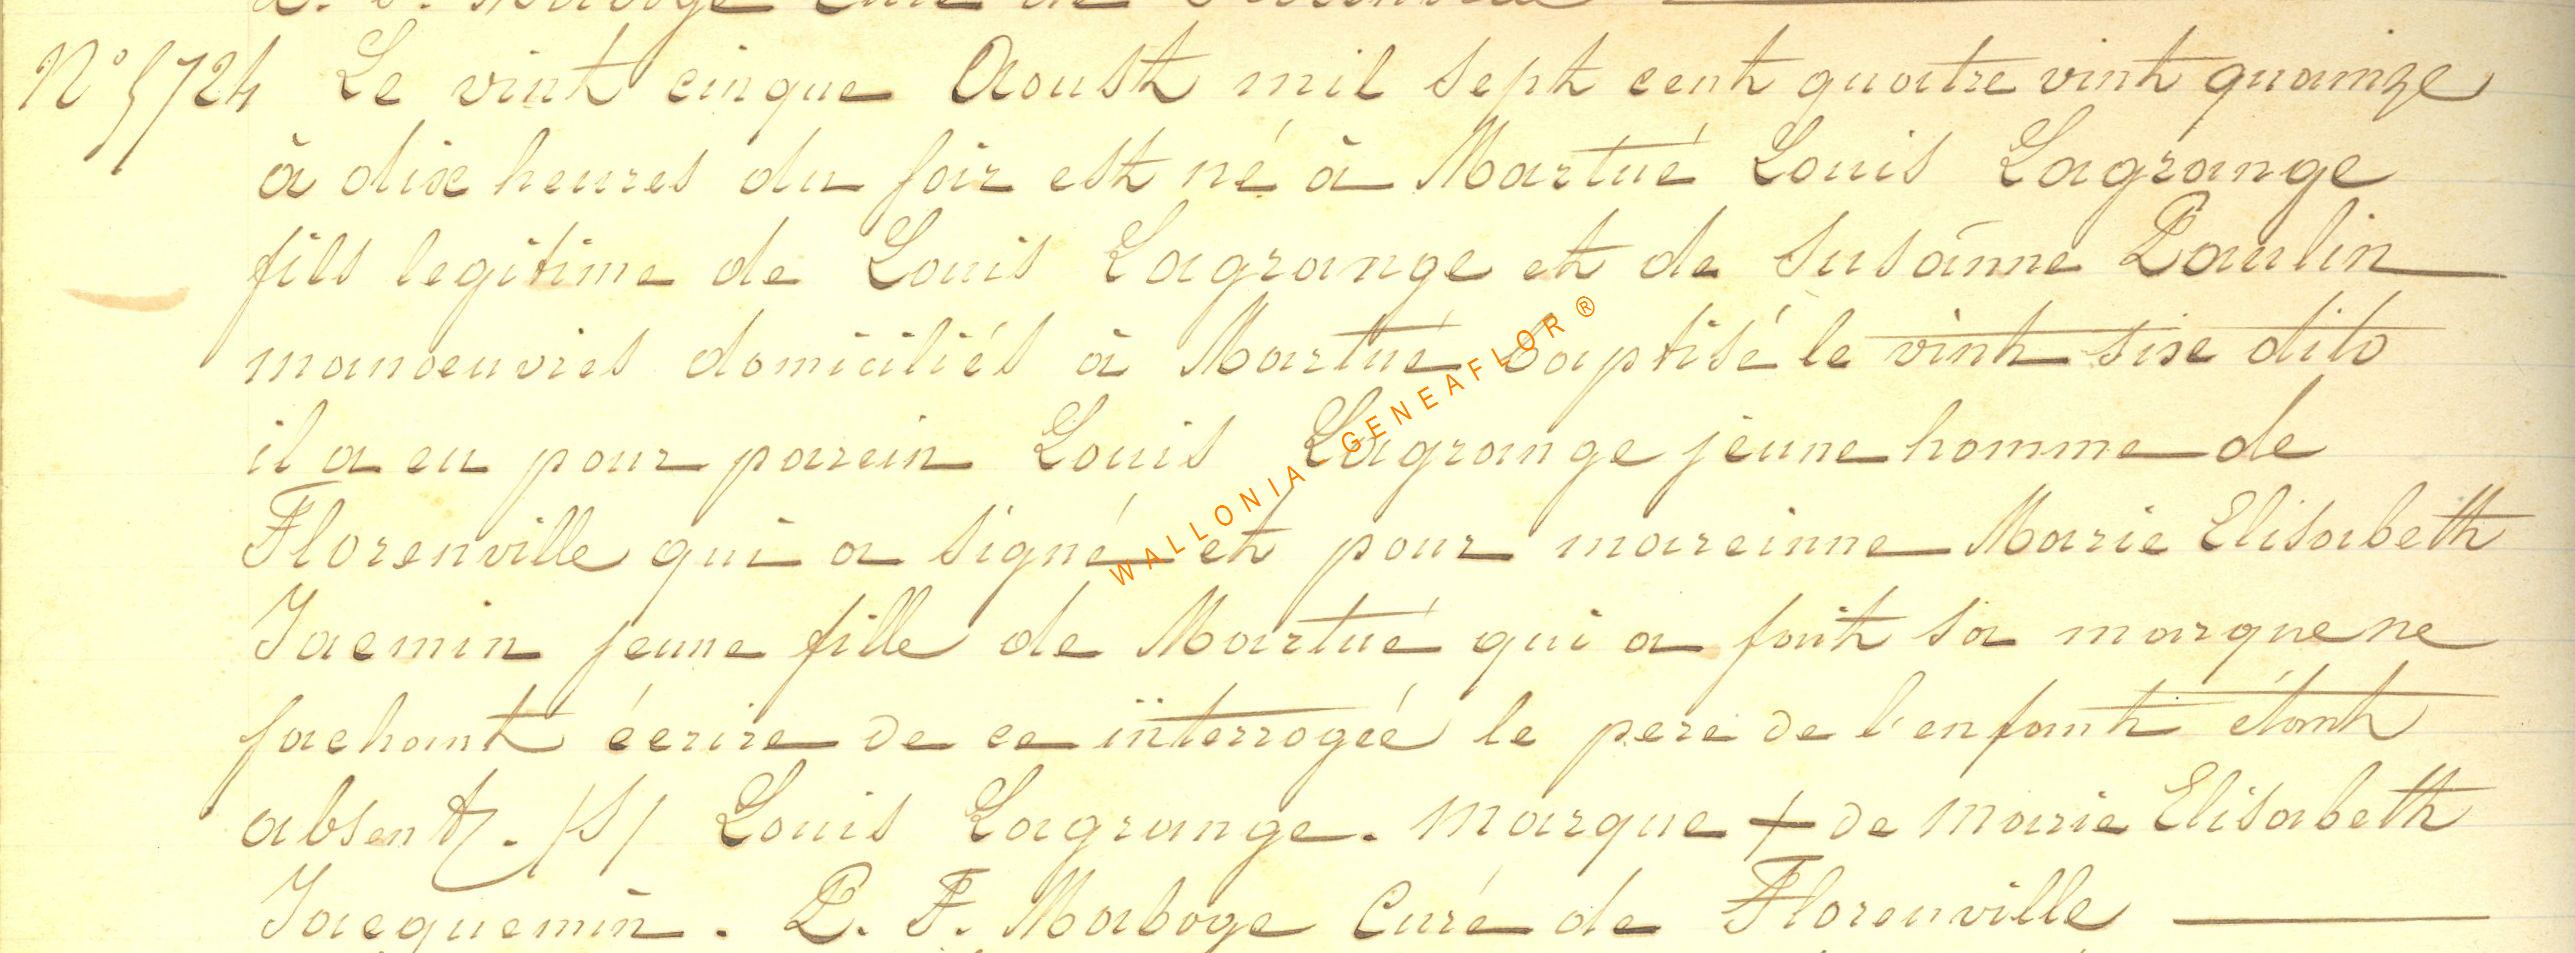 N° 5724 Le vint cinque Aoust mil sept cent quatre vint quainze
à dixe heures du soir est né à Martué Louis Lagrange
fils legitime de Louis Lagrange et de Susanne Paulin
manoeuvres domiciliés à Martué baptisé le vint sixe dito
il a eu pour parein Louis Lagrange jeune homme de
Florenville qui a signé et pour mareinne Marie Elisabeth
Jacmin jeune fille de Martué qui a fait sa marque ne
sachant écrire de ce interrogéé le pere de l'enfant étant
absent. /S/ Louis Lagrange. Marque + de Marie Elisabeth
Jacquemin. P. F. Maboge Curé de Florenville
WALLONIA GENEAFLOR ®